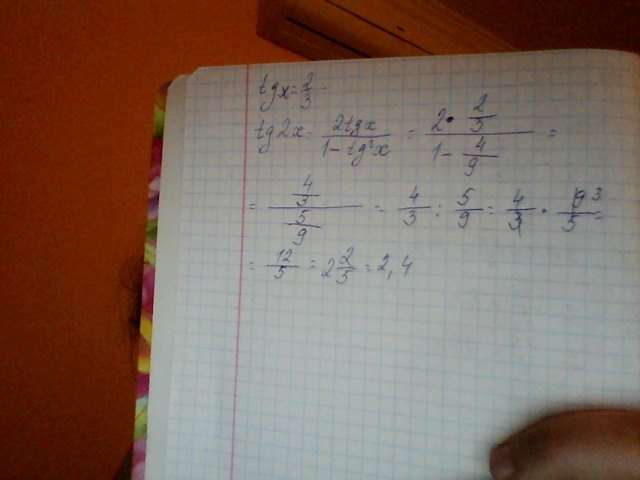 tgx = 2/3
tg2x = 2tgx/(1 - tg²x) = (2 · 2/3)/(1 - 4/9) =
= (4/3)/(5/9) = 4/3 : 5/9 = 4/3 · 9 3/5 =
= 12/5 = 2 2/5 = 2,4